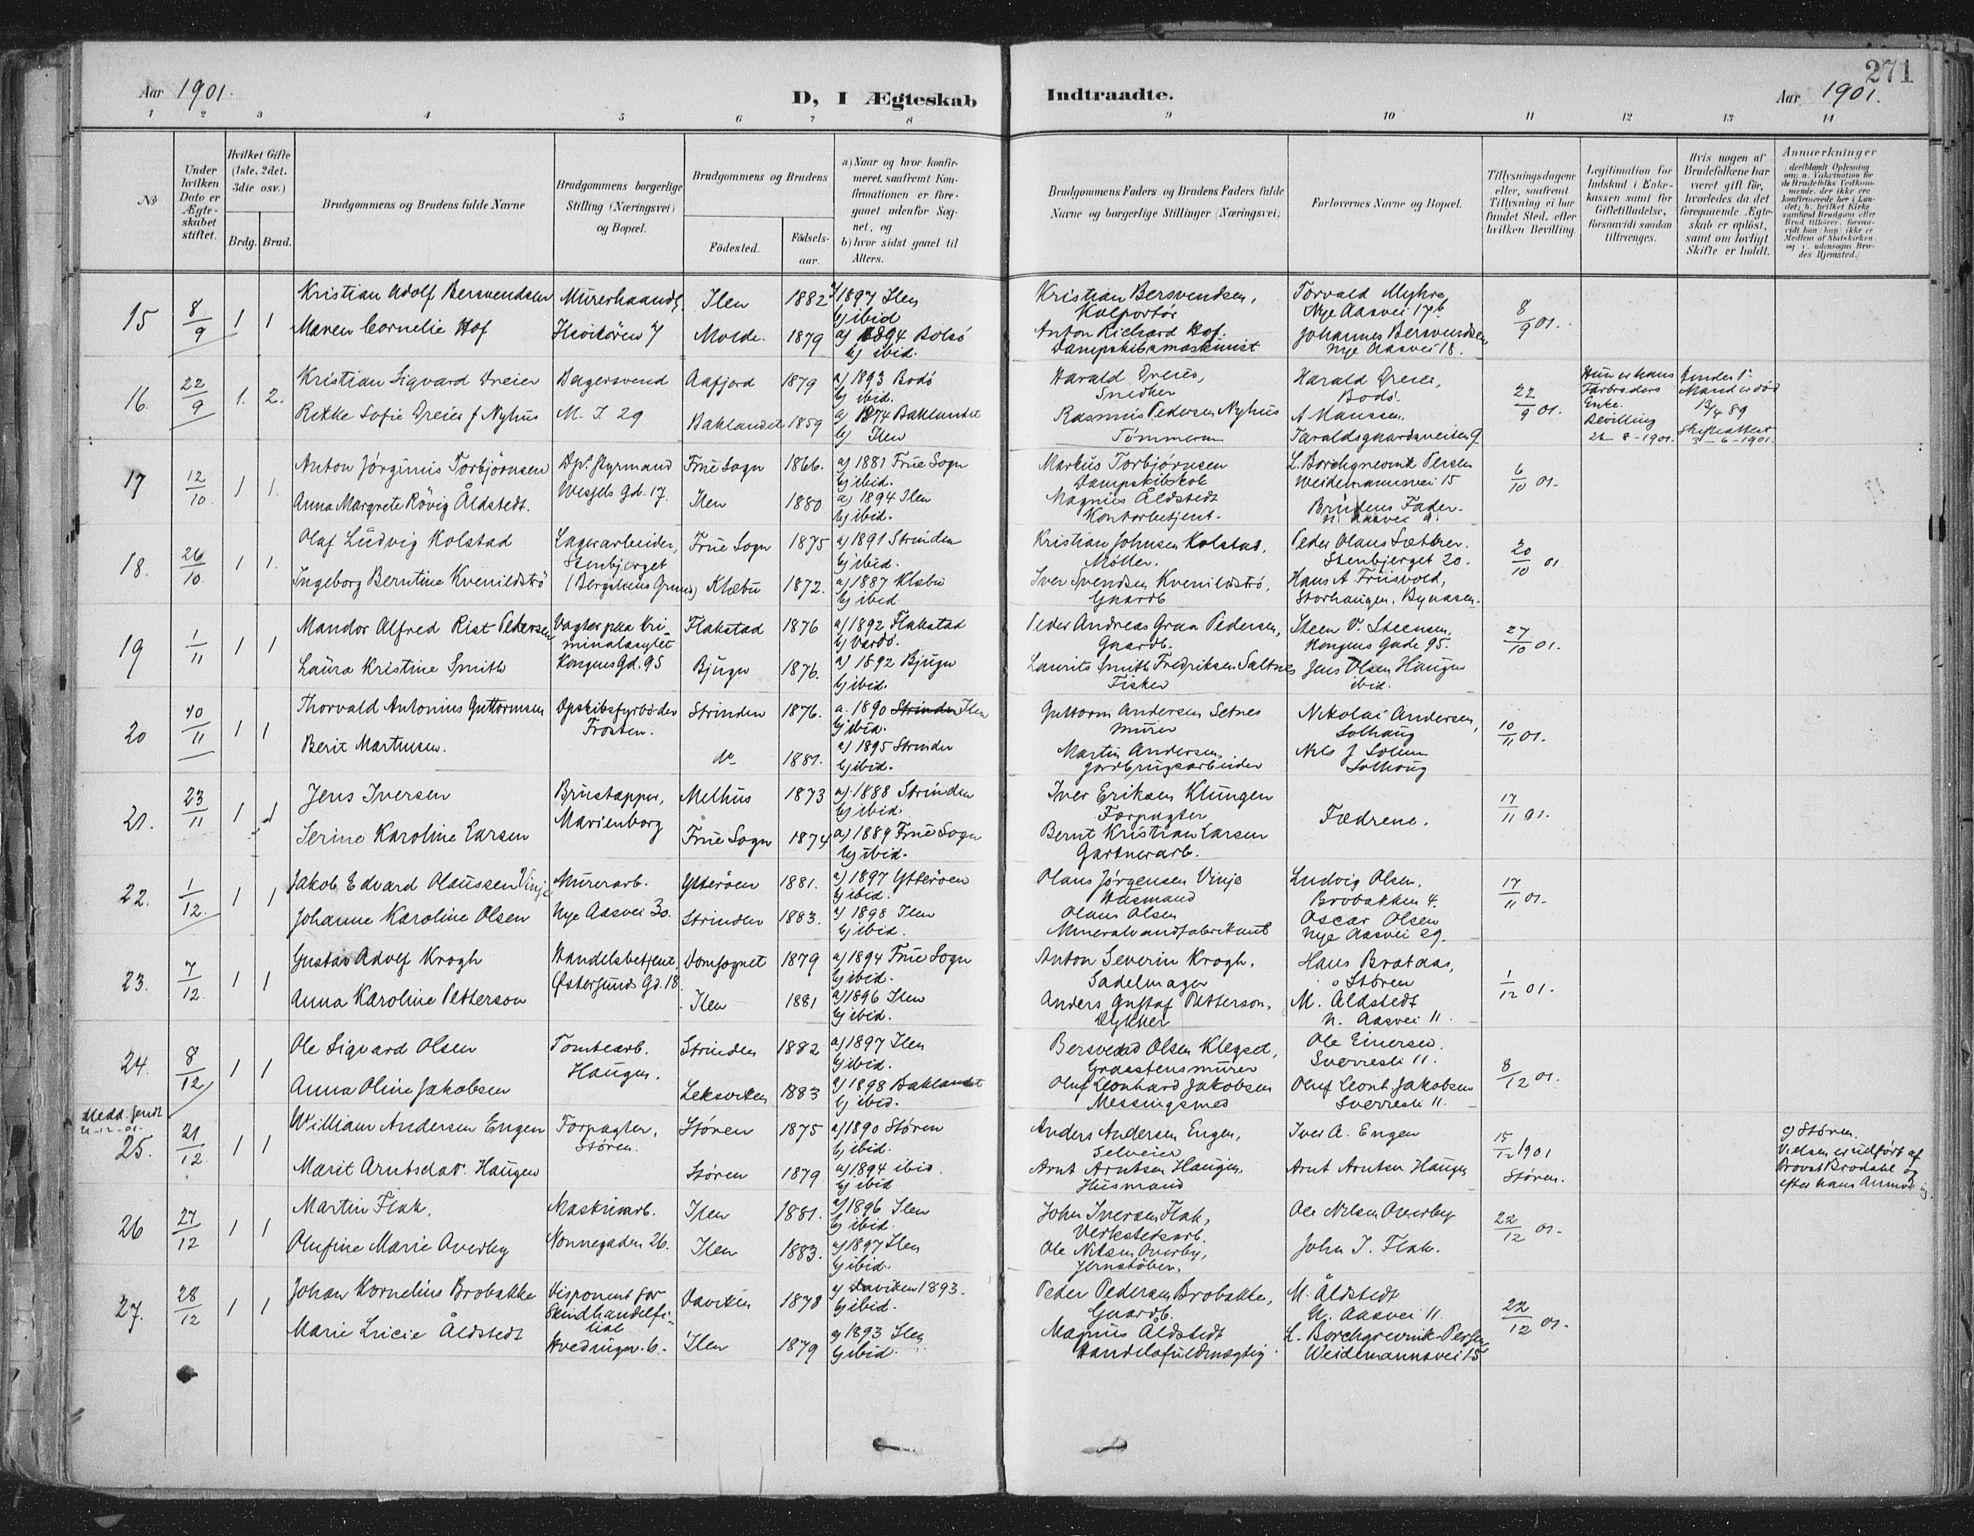 271
Aar 1901.
D, I Ægteskab Indtraadte.
Aar 1901.
1 2 3 4 5 6 7 8 9 10 11 12 13 14
No
Under hvilken Dato er Ægteskabet stiftet.
Hvilket Gifte (1ste, 2det, 3die osv.)
Brdg. Brud.
Brudgommens og Brudens fulde Navne
Brudgommens borgerlige Stilling (Næringsvei) og Bopæl.
Brudgommens og Brudens
Fødested.
Fødsels-aar.
a) Naar og hvor konfirmeret, samt om Konfirmationen er foregaaet udenfor Sognet, og
b) hvor sidst gaaet til Alters.
Brudgommens Faders og Brudens Faders fulde Navne og borgerlige Stillinger (Næringsvei)
Forlovernes Navne og Bopæl.
Tillysningsdagene eller, saafremt Tillysning ei har fundet Sted, efter hvilken Bevilling.
Legitimation for Indskud i Enkekassen samt for Giftetilladelse, forsaavidt saadan tiltrænges.
Hvis nogen af Brudefolkene har været gift før, hvorledes da det foregaaende Ægteskab er opløst, samt om lovligt Skifte er holdt.
Anmærkninger
15 8/9 1 1
Kristian Adolf Bersvendsen Murerhaandl. Ilen 1882 1897 Ilen b) ibid Kristian Bersvendsen, Kolportør Torvald Myhre Nye Aasvei 17b 8/9 01.
Maren Cornelie Hof Molde. 1879 a) 1894 Bolsø b) ibid. Anton Richard Hof. Dampskibsmaskinist Johannes Bersvendsen Nye Aasvei 18.
16. 22/9 1. 2.
Kristian Sigvard Dreier Bagersvend Aafjord 1879 a) 1893 Bodø b) ibid. Harald Dreier, Snedker Harald Dreier, Bodø. 22/9 01. Hun er hans Farbroders Enke. Bevilling 8-1901. Hendes 1. Mand er død 13/4 89 Skifteattest 3-6-1901.
Rikke Sofie Dreier f. Nyhus M. J 29 Baklandet 1859 a) 1874 Baklandet b) Ilen Rasmus Pedersen Nyhus Tømmerm A Hanssen. Taraldsgaardsveiten 9
17 12/10 1 1.
Anton Jørginus Torbjørnsen Dpl. Styrmand Wessels Gd. 17. Frue Sogn 1866. a) 1881 Frue Sogn b) ibid. Markus Torbjørnsen Dampskibskok L. Borchgrevink Persen Weidemannsvei 15 6/10 01.
Anna Margrete Røvig Åldstedt. Ilen 1880 a) 1894 Ilen b) ibid. Magnus Åldstedt Kontorbetjent. Brudens Fader N. Aasvei
18. 26/10 1 1.
Olaf Ludvig Kolstad Lagerarbeider, Stenbjerget Frue Sogn 1875 a) 1891 Strinden b) ibid. Kristian Johnsen Kolstad, Møller. Peder Olaus Sættrer. Stenbjerget 20. 20/10 01
Ingeborg Berntine Kvenildstrø Klæbu 1872. a) 1887 Klæbu b) ibid Iver Svendsen Kvenildstrø, Gaardb. Hans A Friisvold, Storhaugen, Bynæsen.
19 1/11 1 1
Mandor Alfred Rist Pedersen Vagter paa Kriminalasylet Kongens Gd. 95 Flakstad 1876 a) 1892 Flakstad b) Vardø. Peder Andreas Graa Pedersen, Gaardb. Steen V. Steensen, Kongens Gade 95. 27/10 01.
Laura Kristine Smith Bjugn 1876. a) 1892 Bjugn b) ibid. Laurits Smith Fredriksen Saltnes Fisker Jens Olsen Haugen ibid.
20 10/11 1 1
Thorvald Antonius Guttormsen Dpskibsfyrbøder Frosten. Strinden 1876. a. 1890 Strinden Ilen b) ibid. Guttorm Andersen Setnes Murer Nikolai Andersen, Solhaug 10/11 01.
Berit Martinsen. do 1881. a) 1895 Strinden b) ibid. Martin Andersen, Jordbrugsarbeider Nils J Solem Solhaug
21. 23/11 1 1
Jens Iversen Brustapper, Marienborg Melhus 1873 a) 1888 Strinden b) ibid. Iver Eriksen Klungen Forpagter Fædrene. 17/11 01.
Serine Karoline Larsen Frue Sogn 1874 a) 1889 Frue Sogn b) ibid. Bernt Kristian Larsen Gartnerarb.
22. 1/12 1 1
Jakob Edvard Olaussen Vinje Murerarb. Nye Aasvei 30. Ytterøen 1881. a) 1897 Ytterøen b) ibid. Olaus Jørgensen Vinje Husmand Ludvig Olsen, Brobakken 4. 17/11 01.
Johanne Karoline Olsen Strinden 1883. a) 1898 Ilen b) ibid. Olaus Olsen Mineralvandfabrikant Oscar Olsen Nye Aasvei 29.
23. 7/12. 1 1
Gustav Adolf Krogh Handelsbetjent, Østersunds Gd. 18. Domsognet 1879 a) 1894 Frue Sogn b) ibid. Anton Severin Krogh. Sadelmager Hans Brataas, Støren 1/12 01.
Anna Karoline Petterson Ilen 1881 a) 1896 Ilen b) ibid. Anders Gustaf Petterson, Dykker M. Åldstedt N. Aasvei 11.
24. 8/12 1 1
Ole Sigvard Olsen Tomtearb. Haugen. Strinden 1882 a) 1897 Ilen b) ibid. Bersvend Olsen Klegset, Graastensmurer Ole Einersen. Sverresli 11. 8/12 01.
Anna Oline Jakobsen Leksviken 1883 a) 1898 Baklandet b) ibid. Oluf Leonhard Jakobsen Messingsmed Oluf Leonh. Jakobsen Sverresli 11.
Medd. sendt 21-12-01.
25. 21/12. 1 1
William Andersen Engen Forpagter, Støren. Støren 1875 a) 1890 Støren b) ibid. Anders Andersen Engen, Selveier Iver A. Engen 15/12 1901 Støren. c) Støren. Vielsen er udført af Provst Brodahl og efter hans Anmodning.
Marit Arntsdat. Haugen Støren 1879 a) 1894 ibid. b) ibid. Arnt Arntsen Haugen, Husmand Arnt Arntsen Haugen
26 27/12 1 1
Martin Flak, Maskinarb. Nonnegaden 26. Ilen 1881. a) 1896 Ilen b) ibid. John Iversen Flak, Verkstedsarb. Ole Nilsen Overby 22/12 01.
Olufine Marie Overby Ilen 1883. a) 1897 Ilen b) ibid. Ole Nilsen Overby, Jernstøber. John I. Flak.
27. 28/12 1 1
Johan Kornelius Brobakke Disponent for Skindhandelfilial Hvedingsv. 6. Daviken 1878 a) Daviken 1893. b) ibid. Peder Pedersen Brobakke, Gaardb. M. Åldstedt N. Aasvei 11. 22/12 01.
Marie Lucie Åldstedt Ilen 1879 a) 1893 Ilen b) ibid. Magnus Åldstedt Handelsfuldmægtig. L. Borchgrevink-Persen Weidemannsvei 15